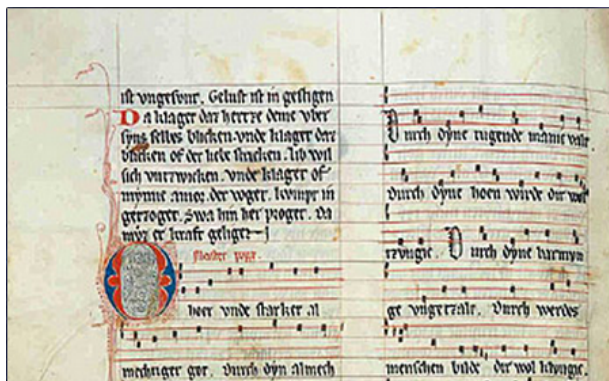 ist vngesunt. Gelust ist in gestigen
Da klaget daz hertze deme vber
syns selbes blicken vnde klaget daz
blicken of der liebe stricken. lib wil
sich vurzwicken. vnde klaget of
mynne amor. der voget. kvmpt in
gezoget. Swa hin her
myt er kraft geliget
Meister
O hoer vnde starker al
mechtiger got. Durch dyn almech
Durch dyne tugende manic valt
Durch dyne hoen wirde dir wol
Durch dyne barmvn
ge vngetzalt. Durch werdes
menschen bilde dir wol